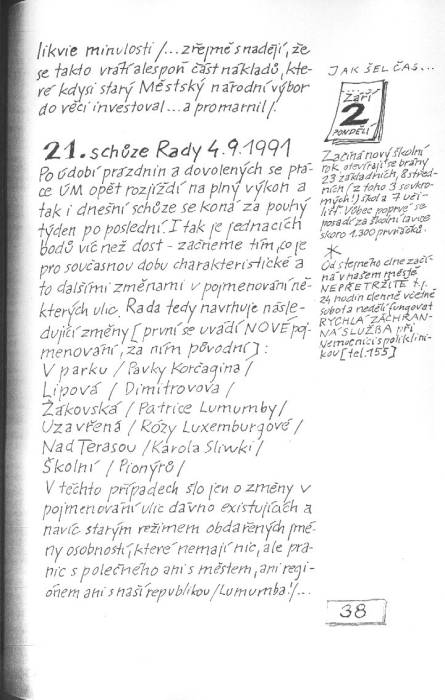 likvie minulosti /...zřejmě s nadějí, že
se takto vrátí alespoň část nákladů, kte-
ré kdysi starý Městský národní výbor
do věci investoval...a promarnil/.
21. schůze Rady 4.9.1991
Po údobí prázdnin a dovolených se prá-
ce ÚM opět rozjíždí na plný výkon a
tak i dnešní schůze se koná za pouhý
týden po poslední. I tak je jednacích
bodů víc než dost - začneme tím, co je
pro současnou dobu charakteristické a
to dalšími změnami v pojmenování ně-
kterých ulic. Rada tedy navrhuje násle-
dující změny [první se uvádí NOVÉ poj-
menování, za ním původní]:
V parku / Pavky Korčagina /
Lipová / Dimitrovova /
Žákovská / Patrice Lumumby /
Uzavřená / Rózy Luxemburgové /
Nad Terasou / Karola Śliwki /
Školní / Pionýrů /
V těchto případech šlo jen o změny v
pojmenování ulic dávno existujících a
navíc starým režimem obdařených jmé-
ny osobností, které nemají nic, ale pra-
nic společného ani s městem, ani regi-
ónem ani s naší republikou /Lumumba!/...
JAK ŠEL ČAS...
Září
2
PONDĚLÍ
Začíná nový školní
rok, otevírají se brány
23 základních, 8 střed-
ních (z toho 3 soukro-
mých!) škol a 7 uči-
lišť. Vůbec poprvé se
posadí za školní lavice
skoro 1.300 prvňáčků.
*
Od stejného dne začí-
ná v našem městě
NEPŘETRŽITĚ t.j.
24 hodin denně včetně
sobot a nedělí fungovat
RYCHLÁ ZÁCHRAN-
NÁ SLUŽBA při
Nemocnici s poliklini-
kou [tel. 155]
38